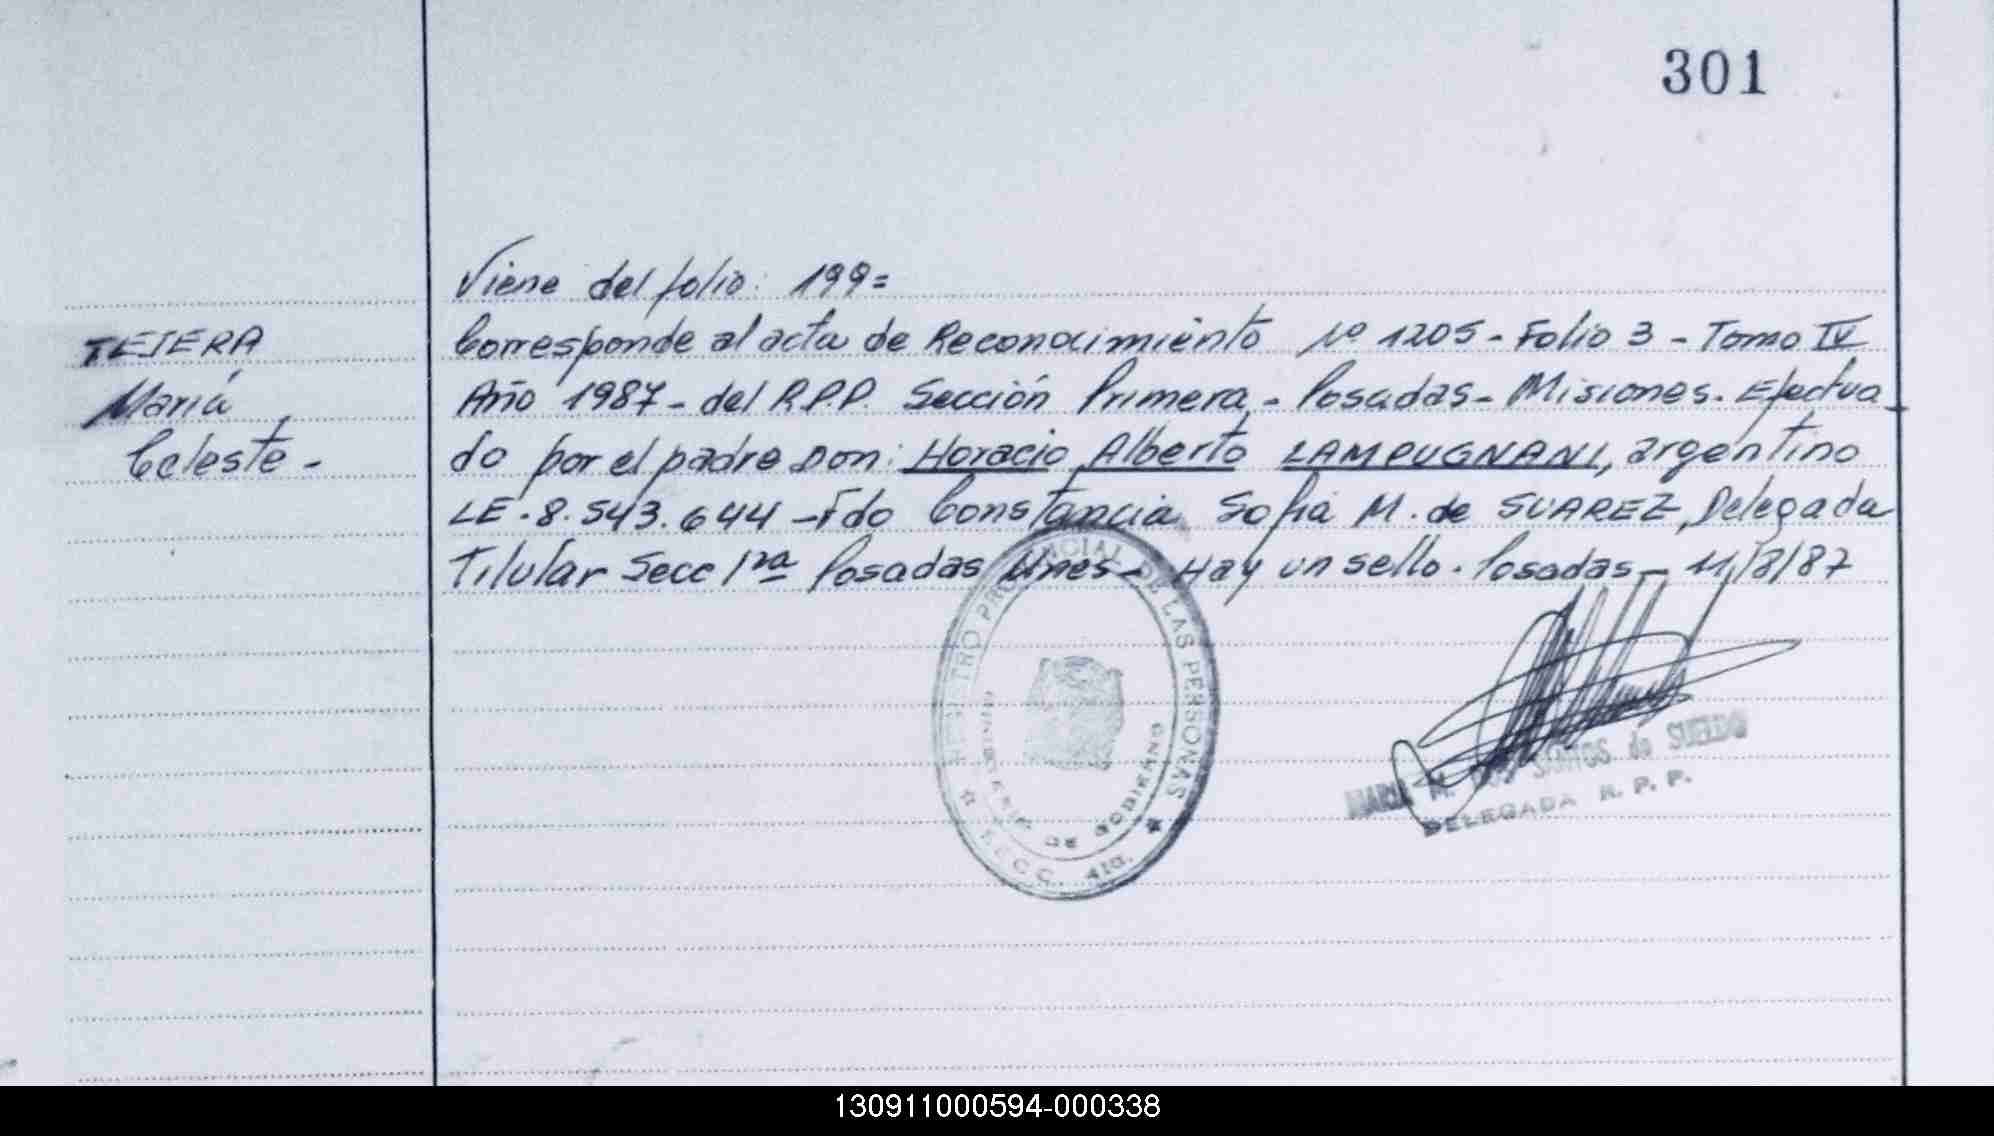 301
Viene del folio: 199=
TEJERA
María
Celeste -
Corresponde al acta de Reconocimiento Nº 1205 - Folio 3 - Tomo IV
Año 1987 - del R.P.P. Sección Primera - Posadas - Misiones. Efectua
do por el padre Don: Horacio Alberto LAMPUGNANI, argentino
LE. 8.543.644 - Fdo Constancia Sofia M. de SUAREZ, Delegada
Titular Secc 1ra Posadas Mnes - Hay un sello. Posadas - 11/8/87
REGISTRO PROVINCIAL DE LAS PERSONAS
MINISTERIO DE GOBIERNO
SECC. 4ta.
MARIA M. DOS SANTOS de SUELDO
DELEGADA R. P. P.
130911000594-000338